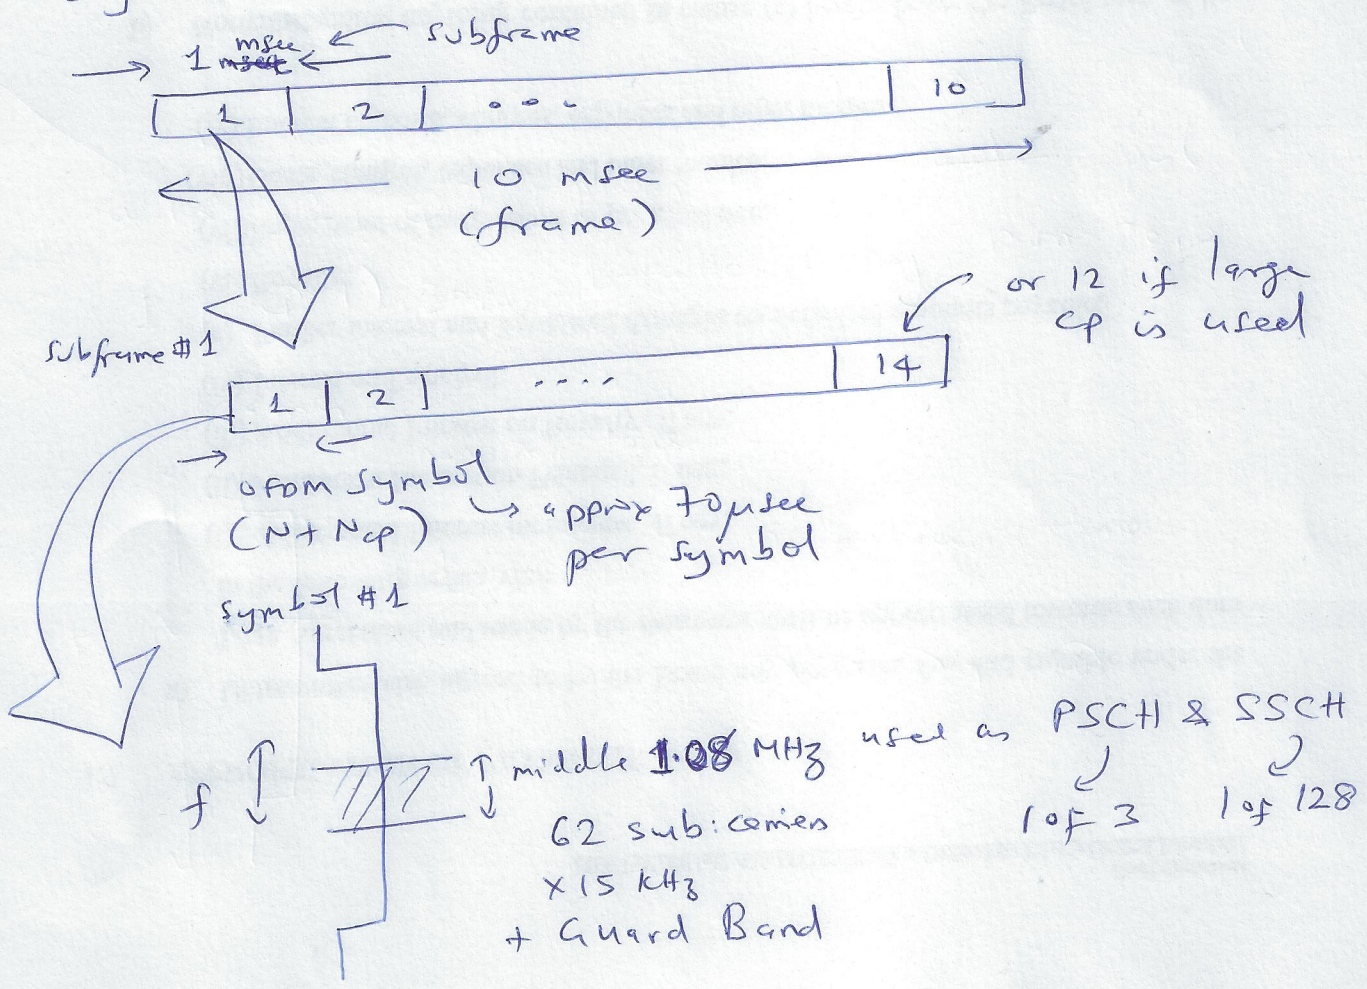 1 msec
subframe
1
2
...
10
10 msec
(frame)
or 12 if large
CP is used
subframe #1
1
2
....
14
OFDM symbol
(N + Ncp)
approx 70 μsec
per symbol
symbol #1
f
middle 1.08 MHz used as PSCH & SSCH
1 of 3
1 of 128
62 sub:carriers
x 15 kHz
+ Guard Band